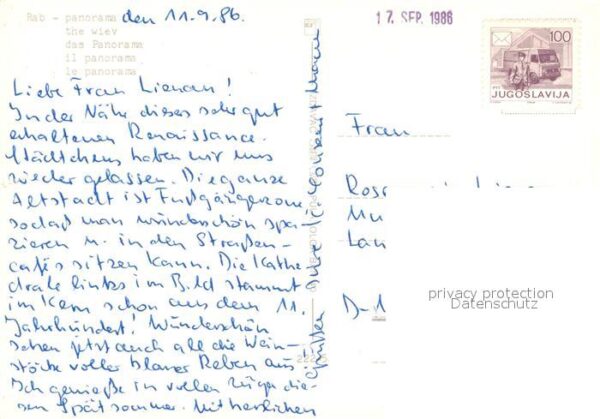 Rab - panorama
the wiev
das Panorama
il panorama
le panorama
den 11.9.86.
17. SEP. 1986
100
JUGOSLAVIJA
Liebe Frau
In der Nähe dieses sehr gut
erhaltenen Renaissance-
städtchens haben wir uns
nieder gelassen. Die ganze
Altstadt ist Fußgängerzone
sodaß man wunderschön spa-
zieren u. in den Straßen-
cafés sitzen kann. Die Kathe-
drale links im Bild stammt
im Kern schon aus dem 11.
Jahrhundert! Wunderschön
sehen jetzt auch all die Wein-
stöcke voller blauer Reben aus!
Ich genieße in vollen Zügen die-
sen Spätsommer. Mit herzlichen
Grüßen Ihre
Frau
D-1
privacy protection
Datenschutz